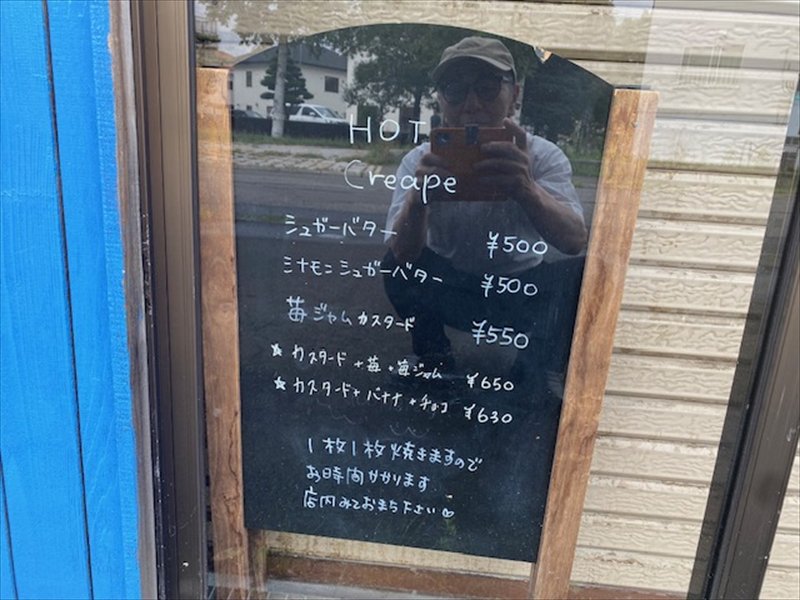 HOT
Creape
シュガーバター ¥500
シナモンシュガーバター ¥500
苺ジャムカスタード ¥550
★カスタード+苺+苺ジャム ¥650
★カスタード+バナナ+チョコ ¥630
1枚1枚焼きますので
お時間かかります
店内みておまち下さい♡